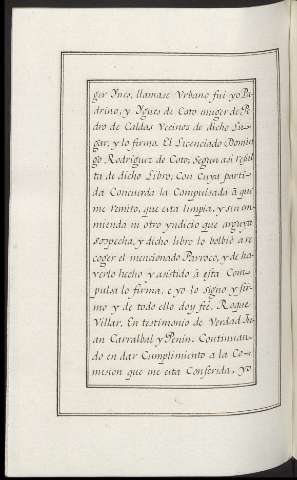 ger Ynes, llamase Vrbano fui yo Pa
drino, y Ygnes de Coto muger de Pe
dro de Caldas Vecinos de dicho Lu-
gar, y lo firma. El Licenciado Domin
go Rodriguez de Coto, Segun asi resul
ta de dicho Libro, con cuya parti-
da Concuerda la Compulsada á que
me remito, que esta limpia, y sin en-
mienda ni otro yndicio que arguya
sospecha, y dicho libro lo bolbió a re
coger el mencionado Parroco, y de ha
verlo hecho y asistido á esta Com-
pulsa lo firma, e yo lo signo y fir-
mo y de todo ello doy feé. Roque
Villar. En testimonio de Verdad Ju
an Carralbal y Penin. Continuan-
do en dar Cumplimiento a la Co-
mision que me esta Conferida, Yo